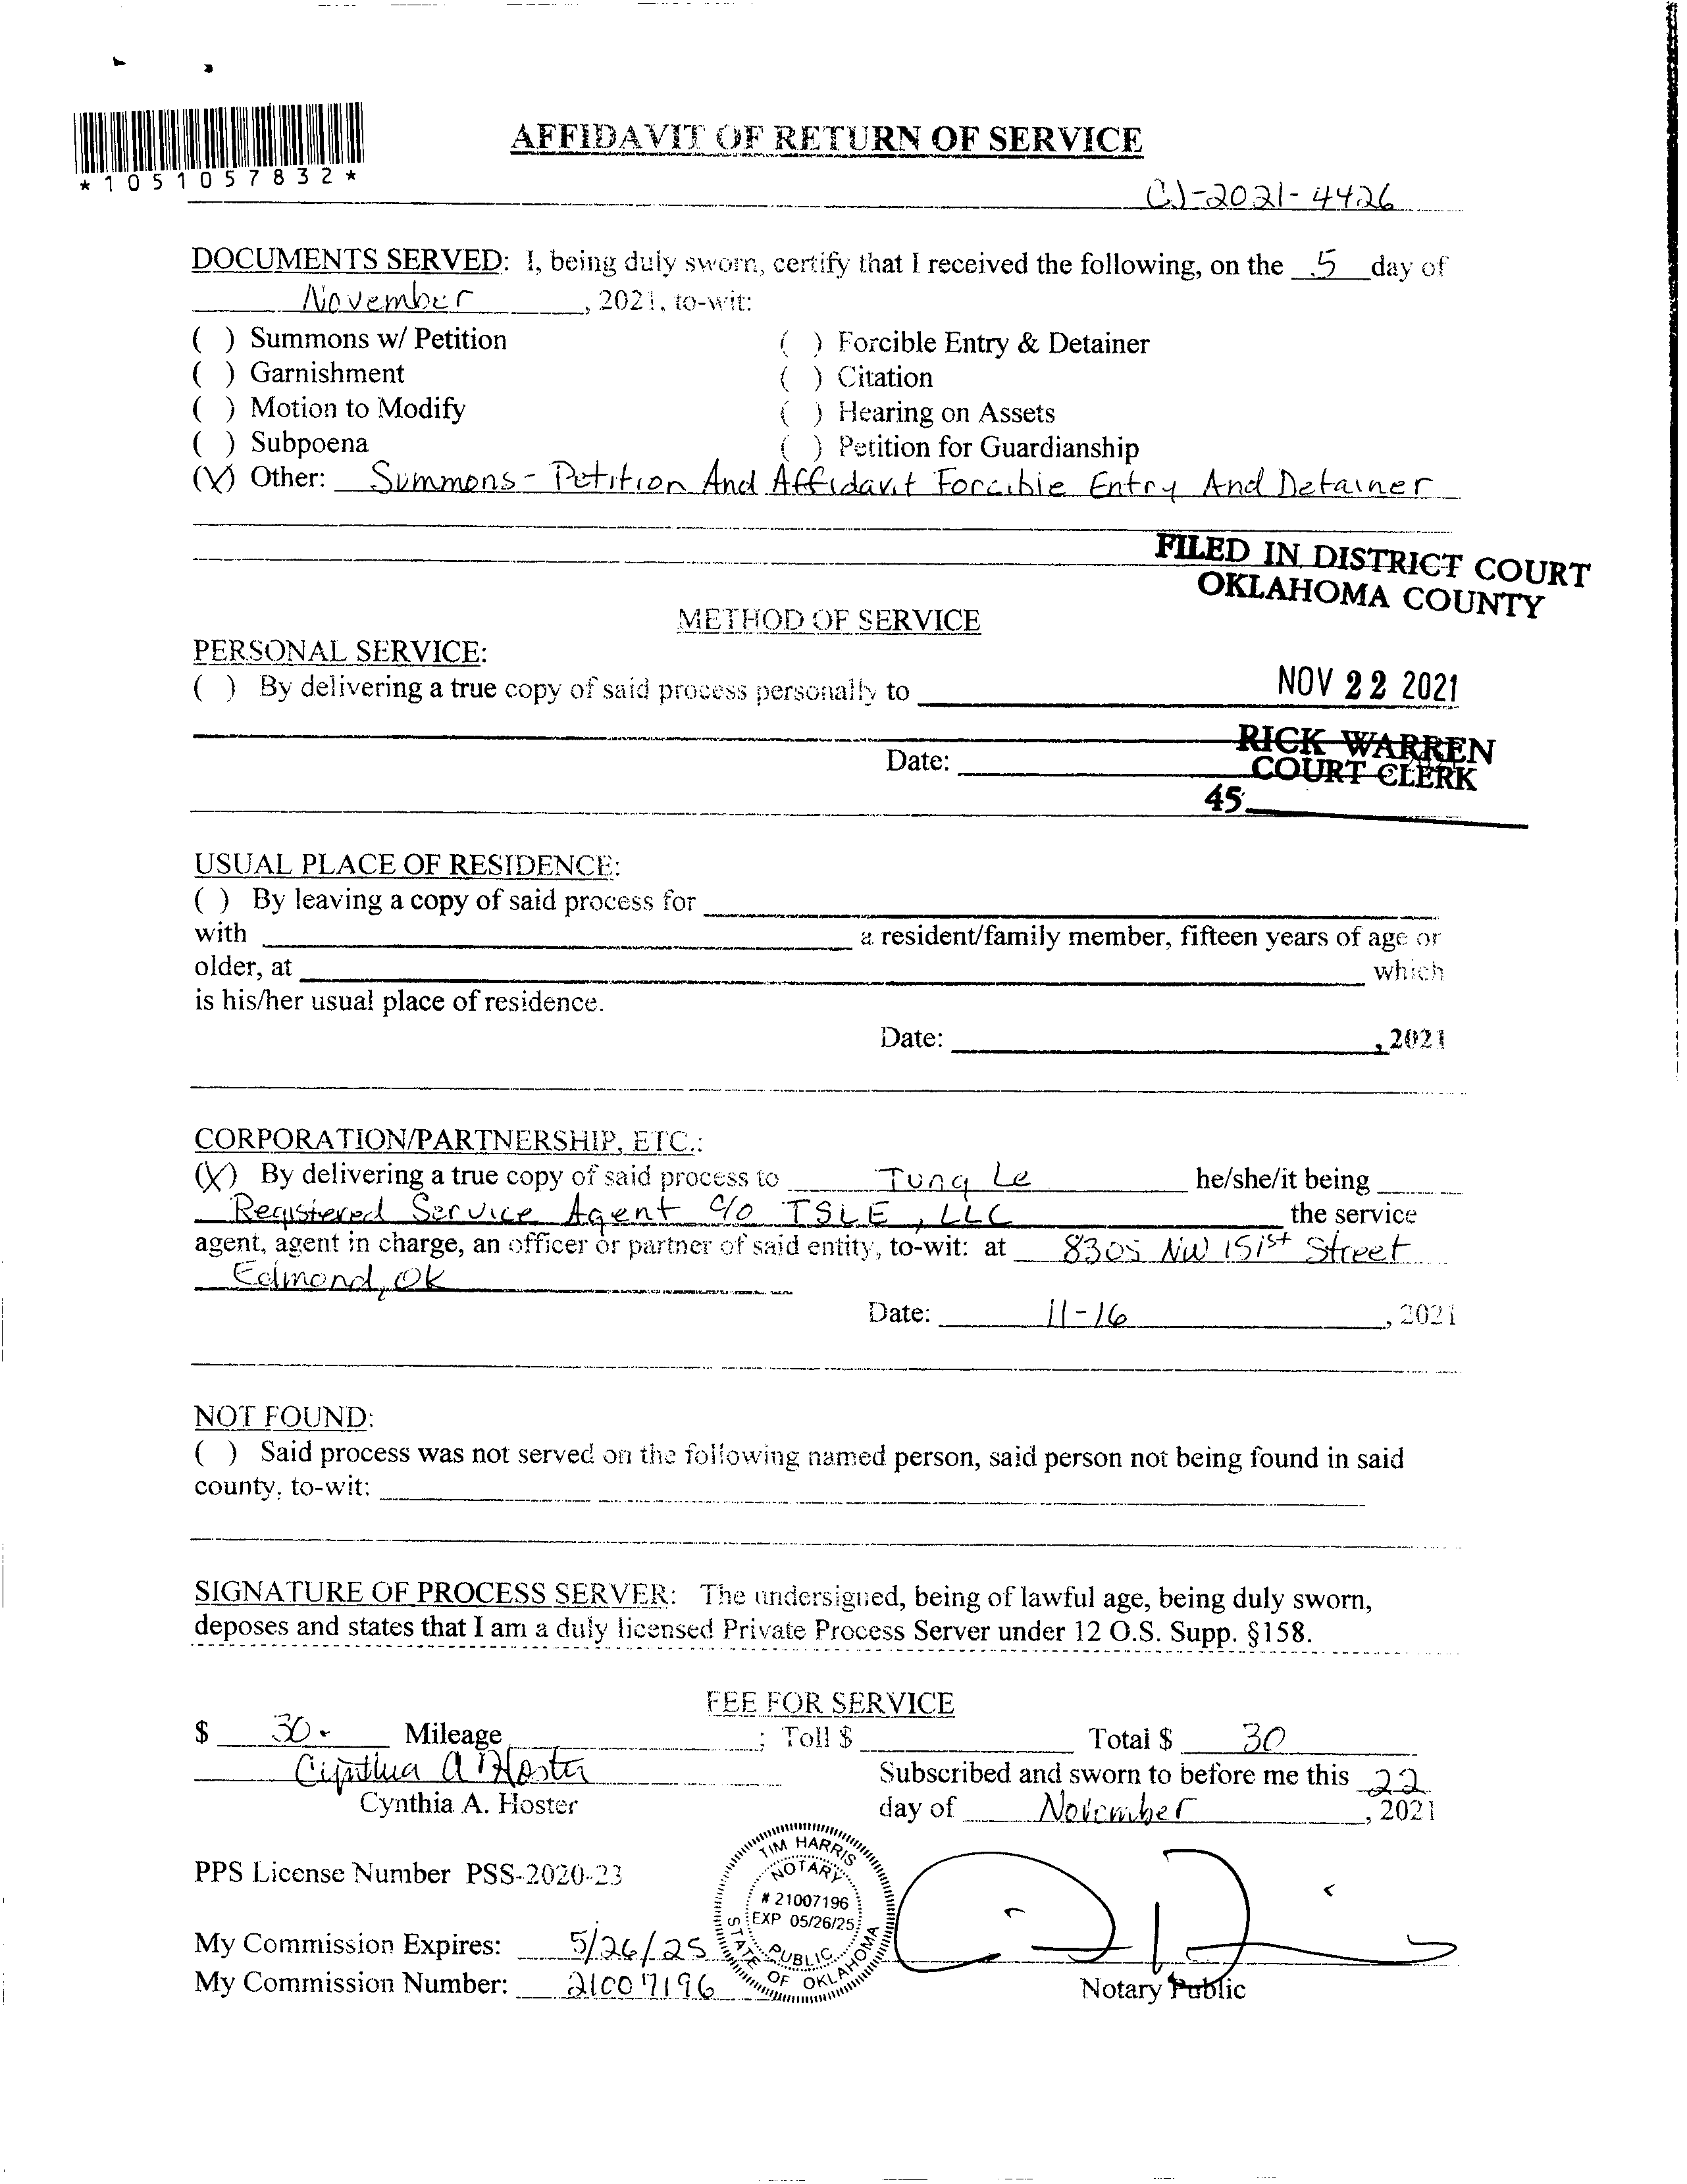 *1051057832*
AFFIDAVIT OF RETURN OF SERVICE
CJ-2021-4426
DOCUMENTS SERVED: I, being duly sworn, certify that I received the following, on the 5 day of
November, 2021, to-wit:
( ) Summons w/ Petition ( ) Forcible Entry & Detainer
( ) Garnishment ( ) Citation
( ) Motion to Modify ( ) Hearing on Assets
( ) Subpoena ( ) Petition for Guardianship
(X) Other: Summons - Petition And Affidavit Forcible Entry And Detainer
FILED IN DISTRICT COURT
OKLAHOMA COUNTY
METHOD OF SERVICE
PERSONAL SERVICE:
( ) By delivering a true copy of said process personally to
NOV 22 2021
RICK WARREN
Date:
COURT CLERK
45
USUAL PLACE OF RESIDENCE:
( ) By leaving a copy of said process for
with a resident/family member, fifteen years of age or
older, at which
is his/her usual place of residence.
Date: , 2021
CORPORATION/PARTNERSHIP, ETC.:
(X) By delivering a true copy of said process to Tung Le he/she/it being
Registered Service Agent c/o TSLE, LLC the service
agent, agent in charge, an officer or partner of said entity, to-wit: at 8305 NW 151st Street
Edmond, OK
Date: 11-16, 2021
NOT FOUND:
( ) Said process was not served on the following named person, said person not being found in said
county, to-wit:
SIGNATURE OF PROCESS SERVER: The undersigned, being of lawful age, being duly sworn,
deposes and states that I am a duly licensed Private Process Server under 12 O.S. Supp. §158.
FEE FOR SERVICE
$ 30- Mileage ; Toll $ Total $ 30
Cynthia A Hoster Subscribed and sworn to before me this 22
Cynthia A. Hoster day of November, 2021
TIM HARRIS
NOTARY
PPS License Number PSS-2020-23
# 21007196
EXP 05/26/25
PUBLIC
STATE OF OKLAHOMA
My Commission Expires: 5/26/25
My Commission Number: 21007196 Notary Public